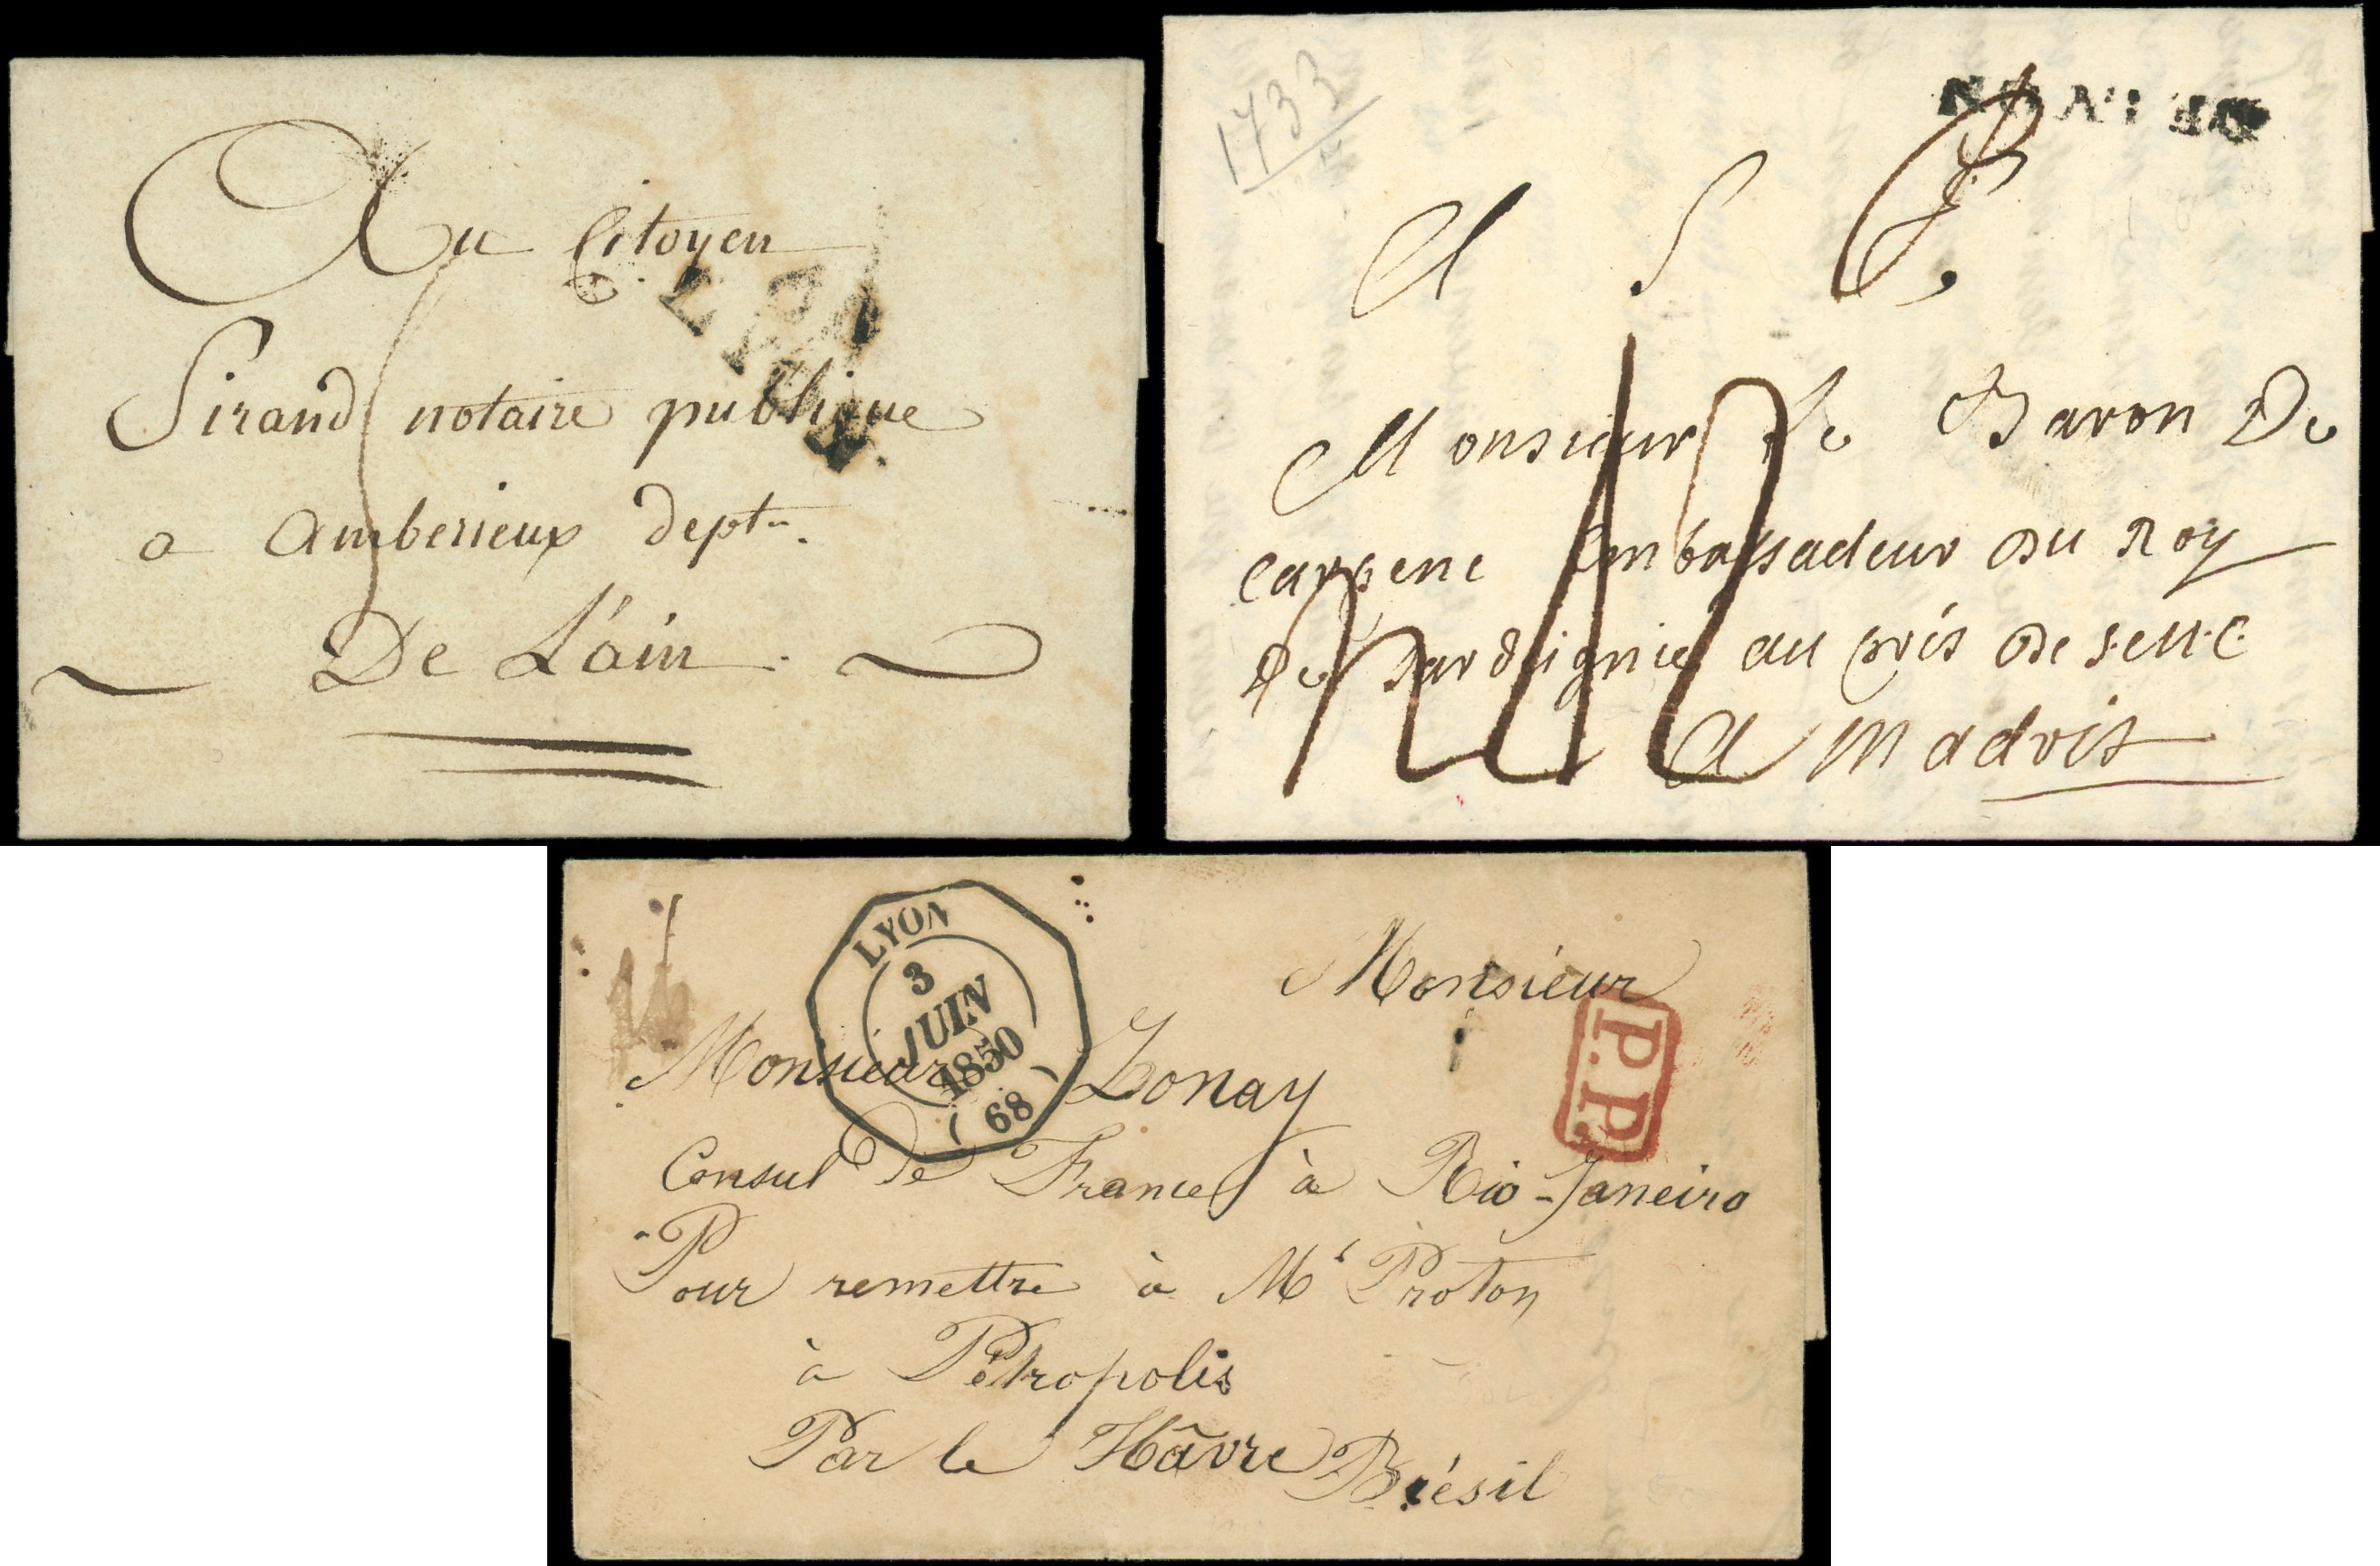 Au Citoyen
Sirand notaire publique
a Amberieux dept.
De L'ain
1733
A S E
Monsieur Le Baron De
Carpene Embassadeur Du Roy
De Sardeignie au prés De S. E
A Madrit
LYON
3
JUIN
1850
(68)
P.P.
Monsieur
Monsieur Zonay
Consul de France à Rio-Janeiro
Pour remettre à Mr Proton
à Pétropolis
Par le Hâvre Brésil